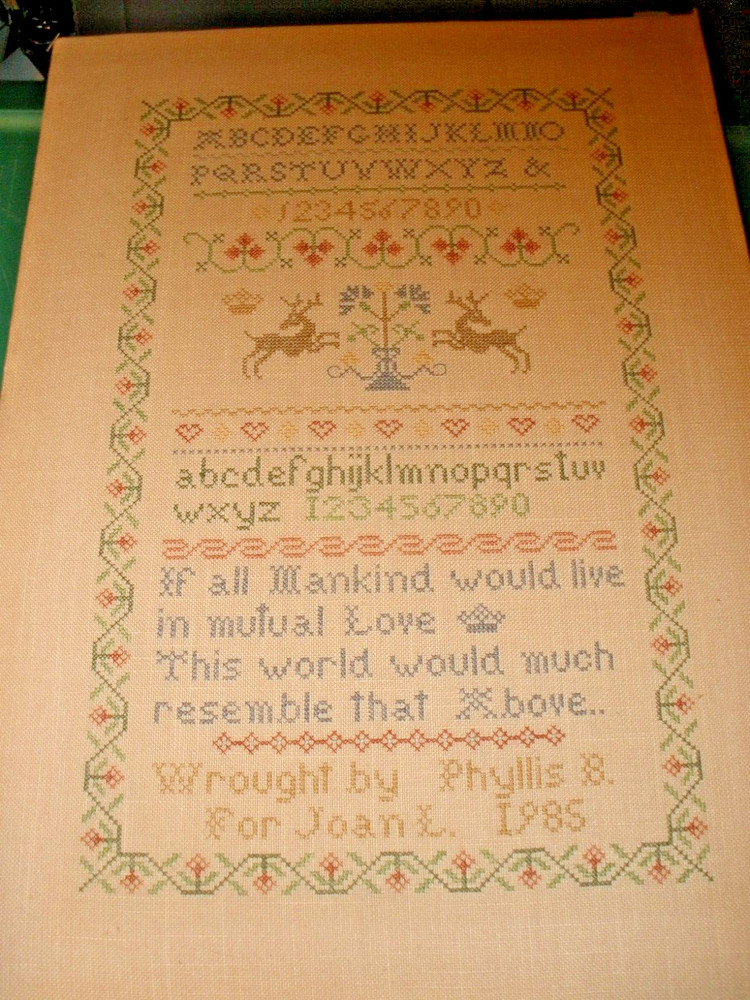 ABCDEFGHIJKLMNO
PQRSTUVWXYZ &
1234567890
abcdefghijklmnopqrstuv
wxyz 1234567890
If all Mankind would live
in mutual Love
This world would much
resemble that Above..
Wrought by Phyllis B.
For Joan L. 1985